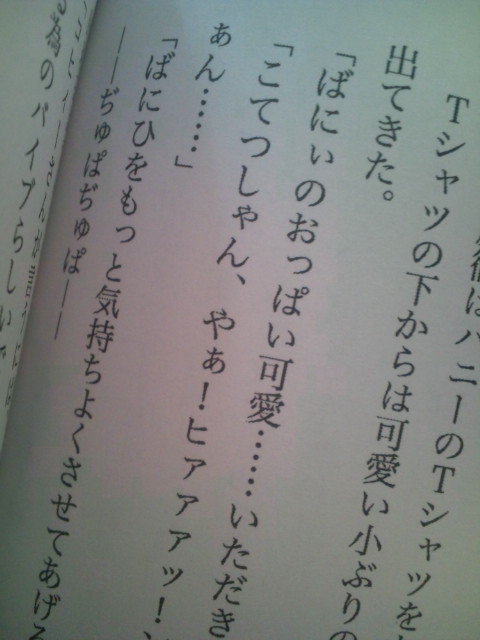 はバニーのTシャツを
Tシャツの下からは可愛い小ぶりの
出てきた。
「ばにぃのおっぱい可愛……いただき
「こてつしゃん、やぁ！ヒァァァッ！、
ぁん……」
「ばにひをもっと気持ちよくさせてあげる
――ぢゅぱぢゅぱ――
為のバイブらしいで